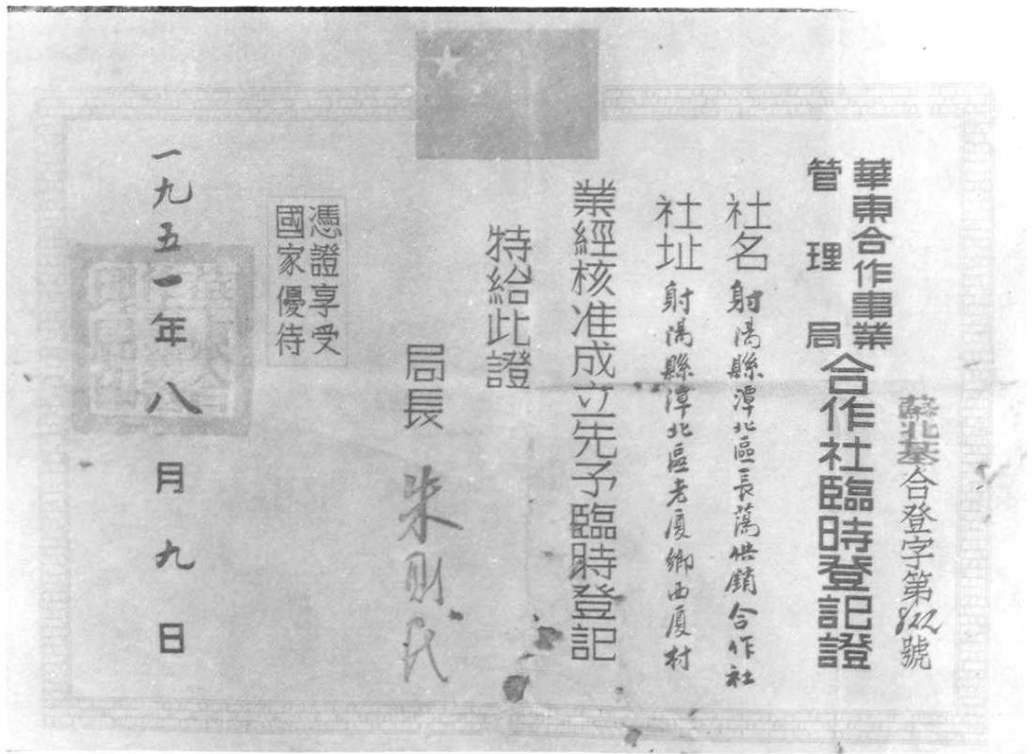 蘇北基合登字第822號
華東合作事業
管理局
合作社臨時登記證
社名 射陽縣潭北區長蕩供銷合作社
社址 射陽縣潭北區老廈鄉西廈村
業經核准成立先予臨時登記
特給此證
局長 朱則民
憑證享受
國家優待
一九五一年八月九日